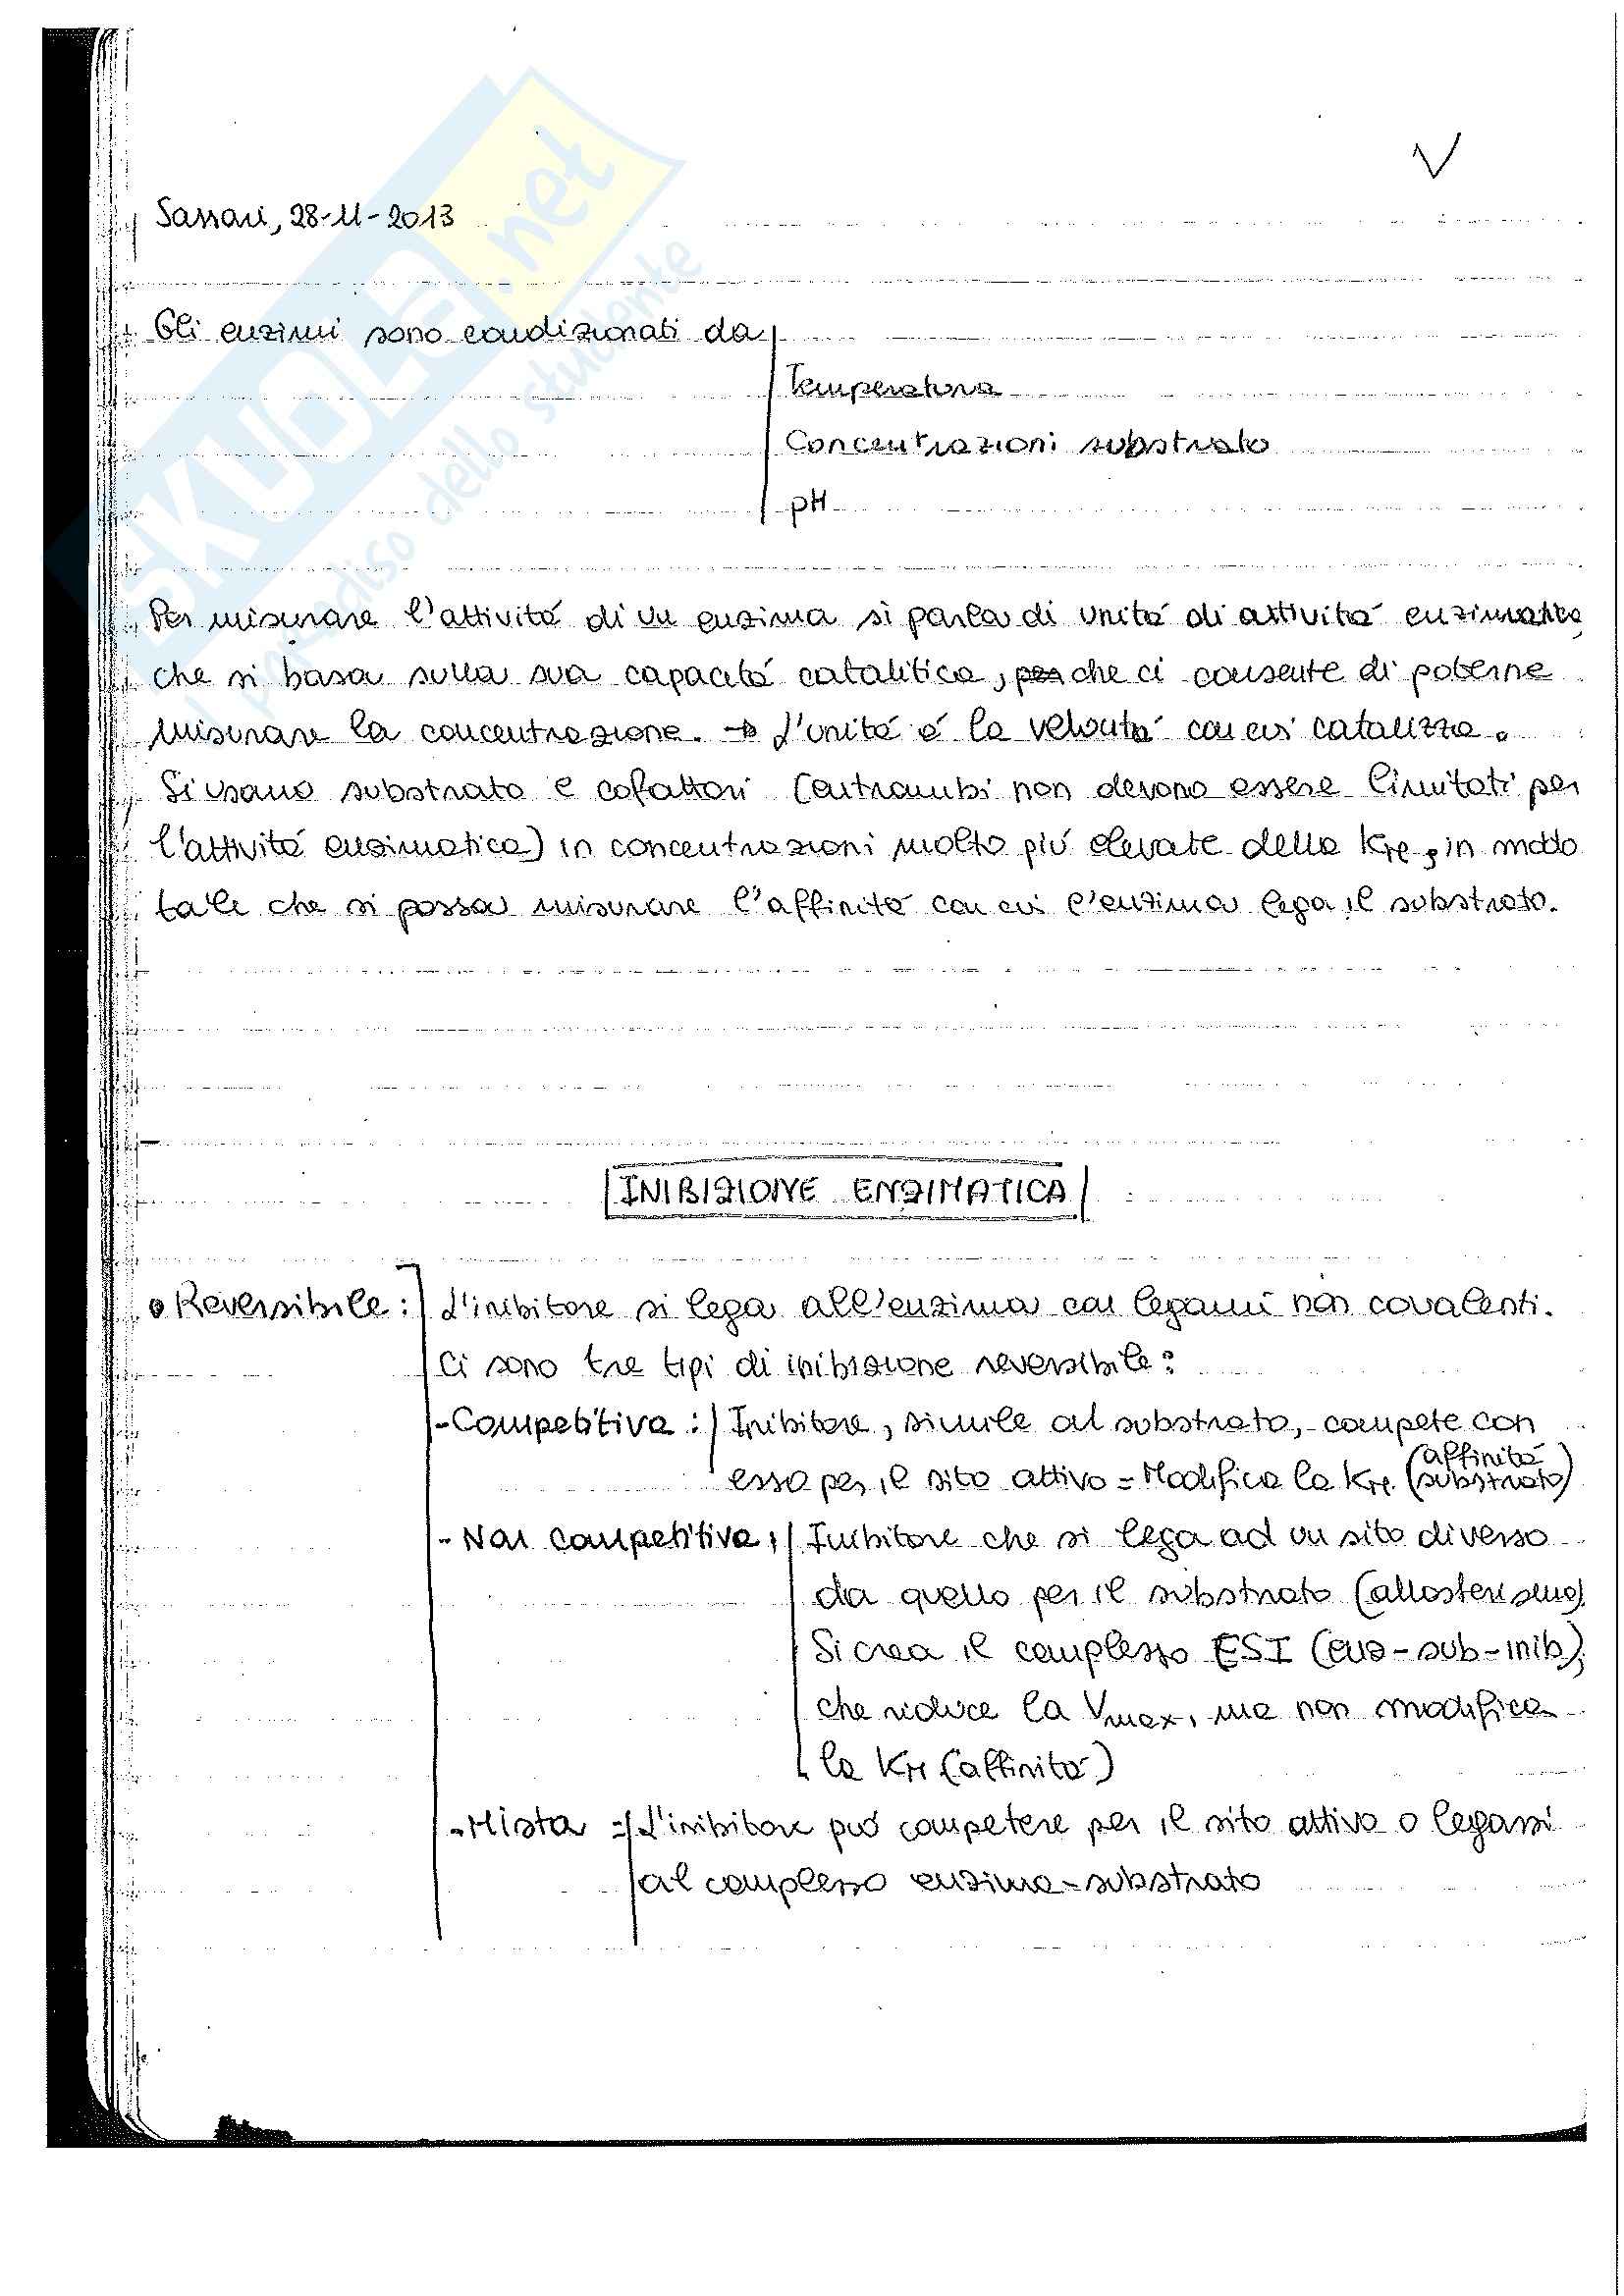 SKUOLA.net
il paradiso dello studente
√
Sassari, 28-11-2013
Gli enzimi sono condizionati da
Temperatura
Concentrazioni substrato
pH
Per misurare l'attività di un enzima si parla di unità di attività enzimatica
che si basa sulla sua capacità catalitica, che ci consente di poterne
misurare la concentrazione. → L'unità è la velocità con cui catalizza.
Si usano substrato e cofattori (entrambi non devono essere limitati per
l'attività enzimatica) in concentrazioni molto più elevate della KM, in modo
tale che si possa misurare l'affinità con cui l'enzima lega il substrato.
INIBIZIONE ENZIMATICA
• Reversibile: L'inibitore si lega all'enzima con legami non covalenti.
Ci sono tre tipi di inibizione reversibile:
- Competitiva: Inibitore, simile al substrato, compete con
esso per il sito attivo = Modifica la KM (affinità substrato)
- Non competitiva: Inibitore che si lega ad un sito diverso
da quello per il substrato (allosterismo).
Si crea il complesso ESI (enz-sub-inib),
che riduce la Vmax, ma non modifica
la KM (affinità)
- Mista = L'inibitore può competere per il sito attivo o legarsi
al complesso enzima-substrato